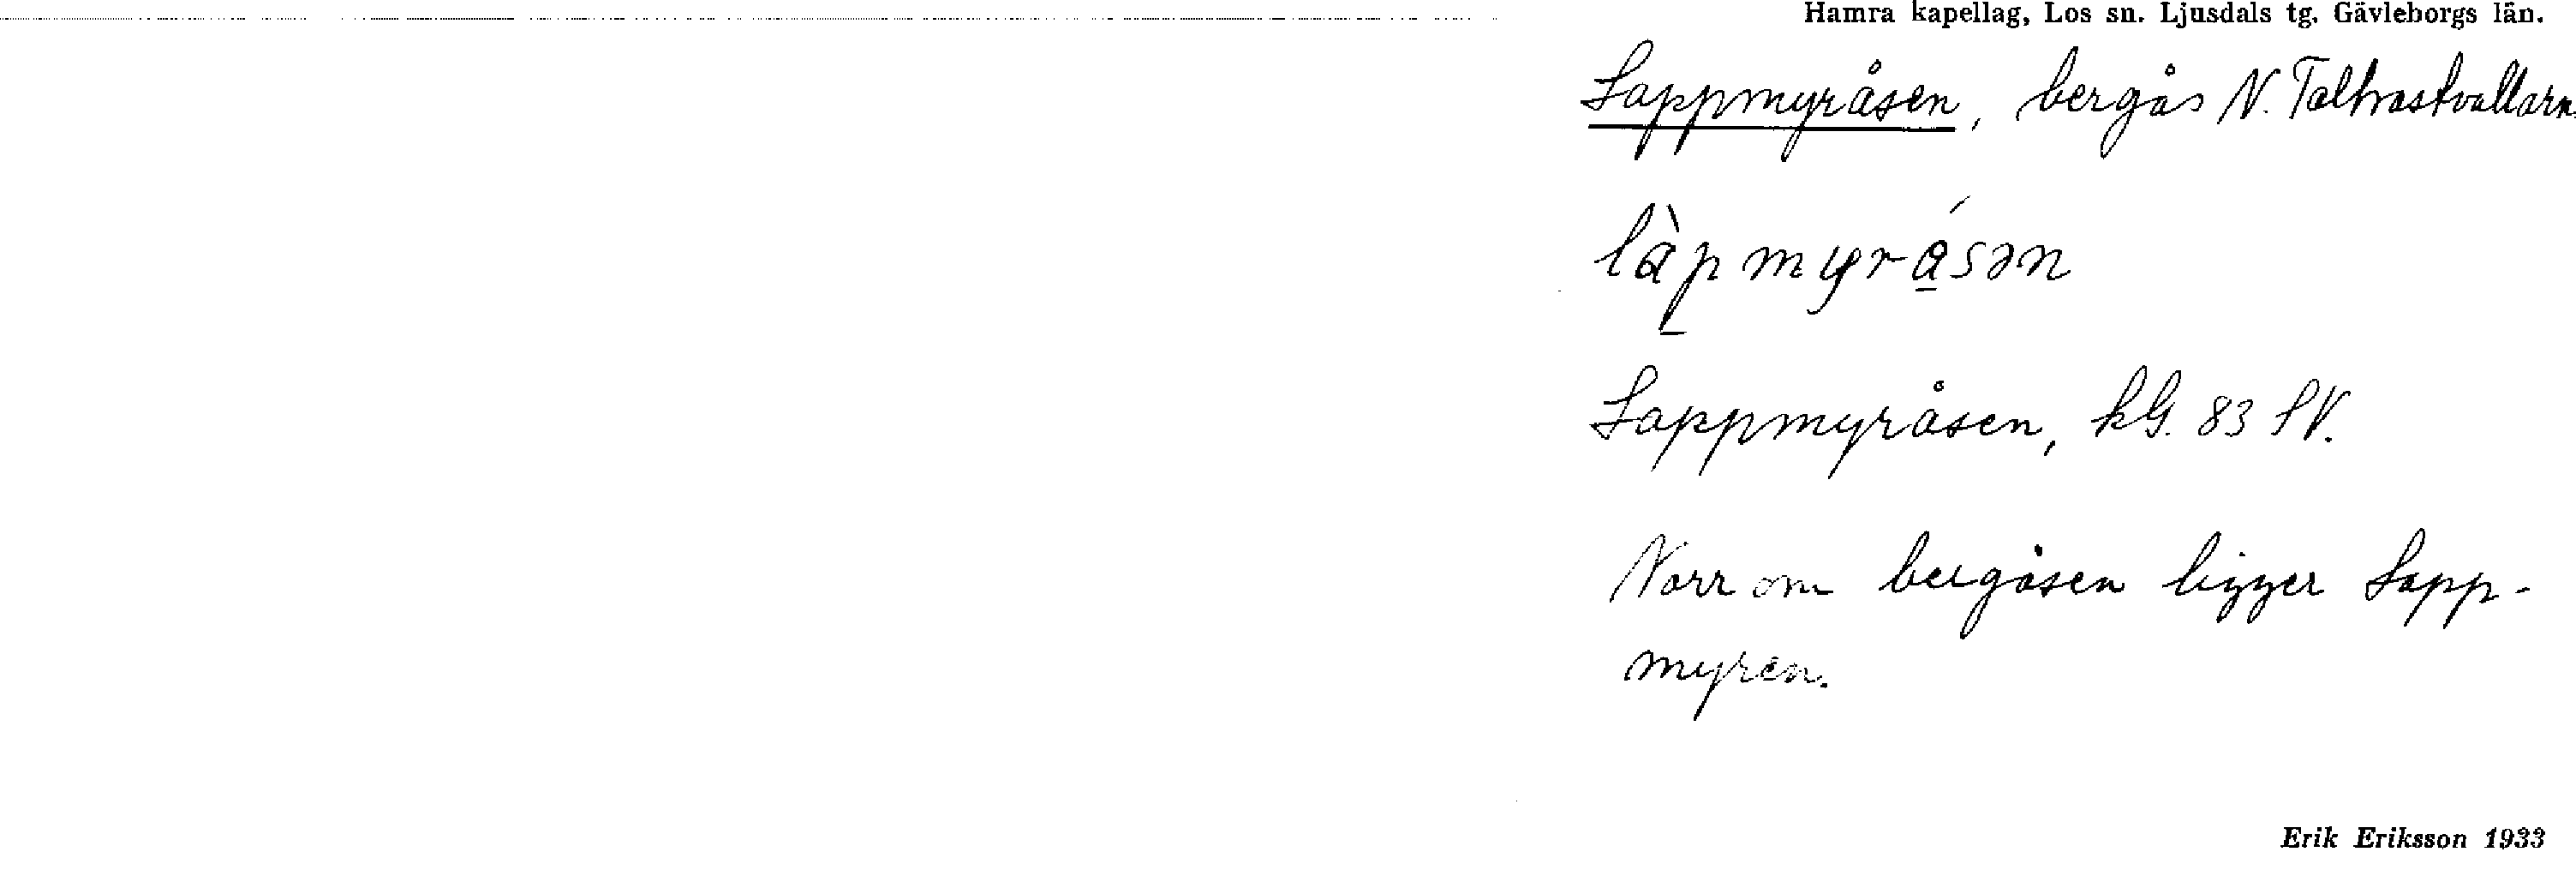 Hamra kapellag, Los sn. Ljusdals tg. Gävleborgs län.
Lappmyråsen, bergås N. Talltrastvallarn.
làpmyråsən
Lappmyråsen, kG. 83 SV.
Norr om bergåsen ligger Lapp-
myren.
Erik Eriksson 1933